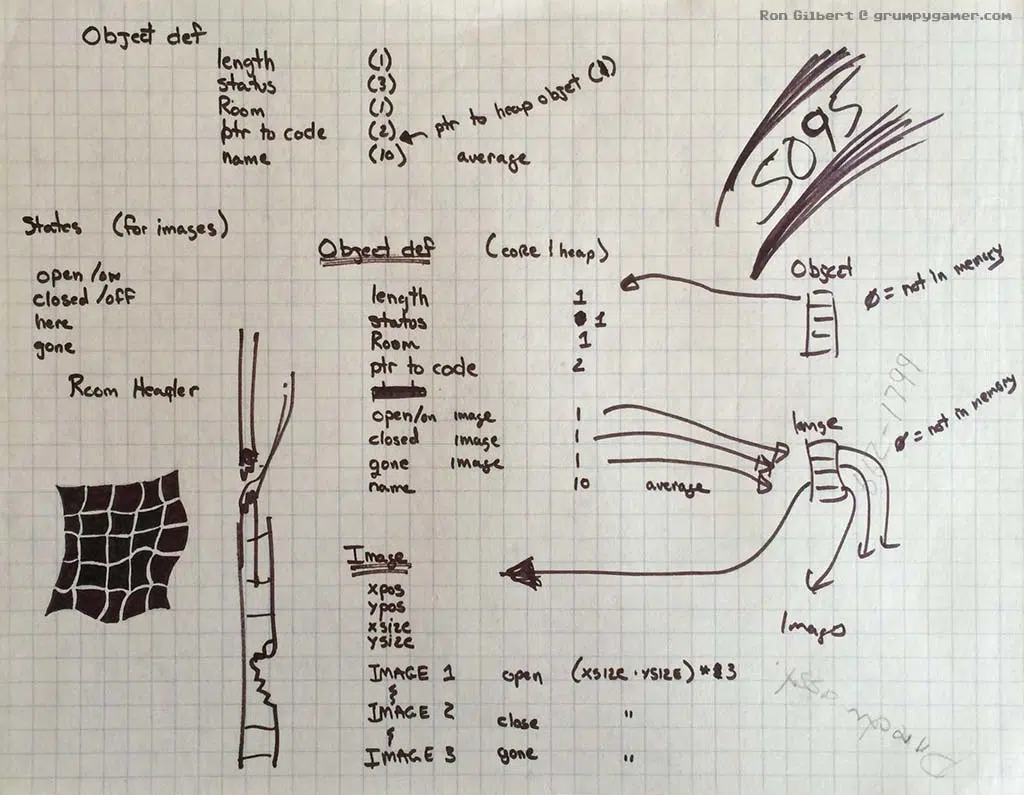 Ron Gilbert @ grumpygamer.com
Object def
length (1)
status (3)
Room (1)
ptr to code (2) ptr to heap objet
name (10) average
5095
States (for images)
open/on
closed/off
here
gone
Room Header
Object def (core / heap)
length 1
status 1
Room 1
ptr to code 2
open/on image 1
closed image 1
gone image 1
name 10 average
Object
Ø = not in memory
Image
Ø = not in memory
Images
Image
xpos
ypos
xsize
ysize
IMAGE 1 open (xSIZE · YSIZE) * 3
IMAGE 2 close "
IMAGE 3 gone "